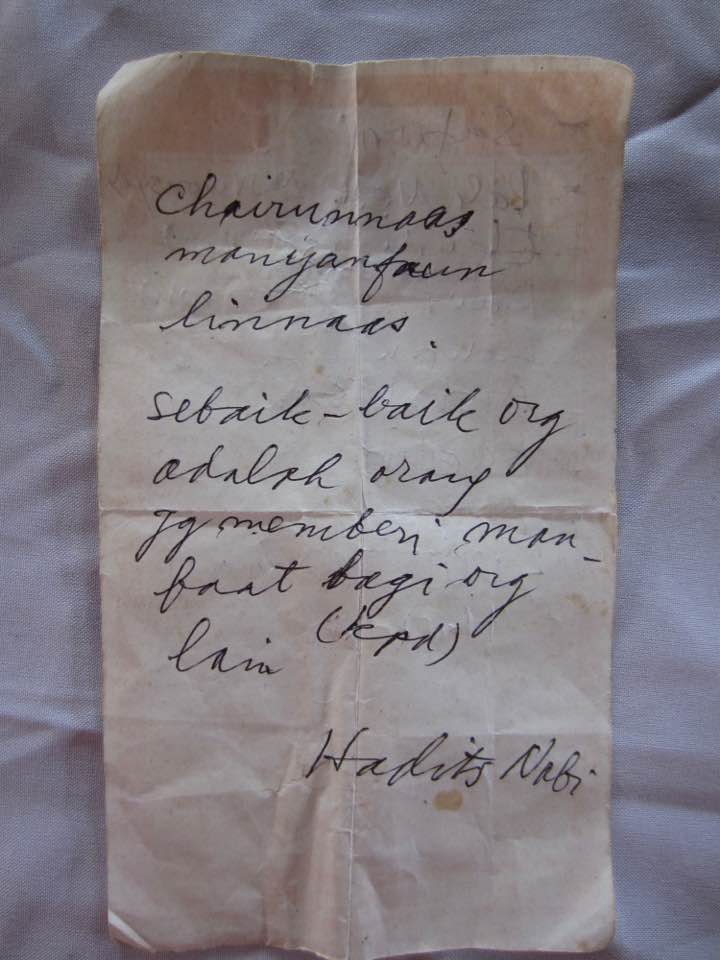 Chairunnaas
manyanfaun
linnaas.
sebaik-baik org
adalah orang
yg memberi man-
faat bagi org
(kpd)
lain
Hadits Nabi